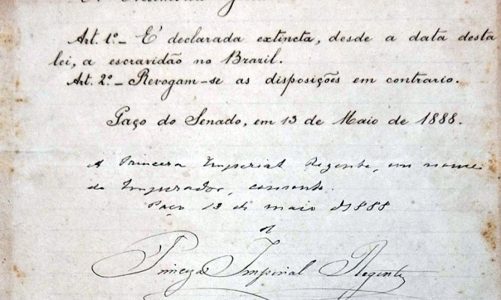 Art. 1º_ E' declarada extincta, desde a data desta
lei, a escravidão no Brazil.
Art. 2º_ Revogam-se as disposições em contrario.
Paço do Senado, em 13 de Maio de 1888.
A Princeza Imperial Regente, em nome
do Imperador, consente.
Paço 13 de maio de 1888
Princeza Imperial Regente